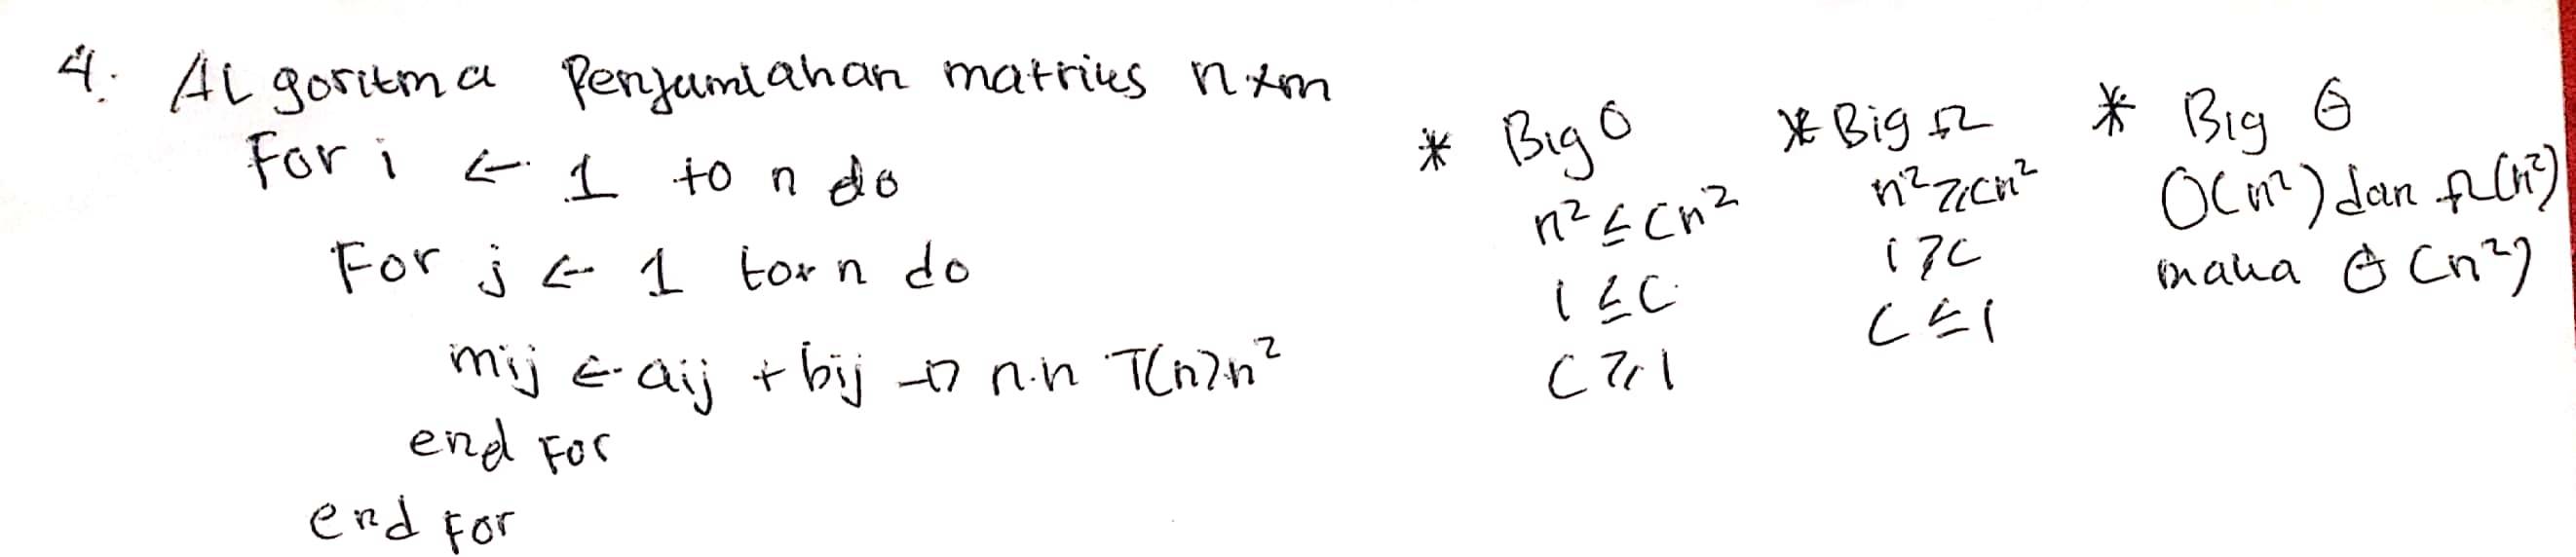 4. Algoritma Penjumlahan matriks nxm
For i ← 1 to n do
For j ← 1 to n do
mij ← aij + bij → n.n T(n)=n²
end For
end For
* Big O
n² ≤ Cn²
1 ≤ C
C ≥ 1
* Big Ω
n² ≥ cn²
1 ≥ C
C ≤ 1
* Big Θ
O(n²) dan Ω(n²)
maka Θ(n²)